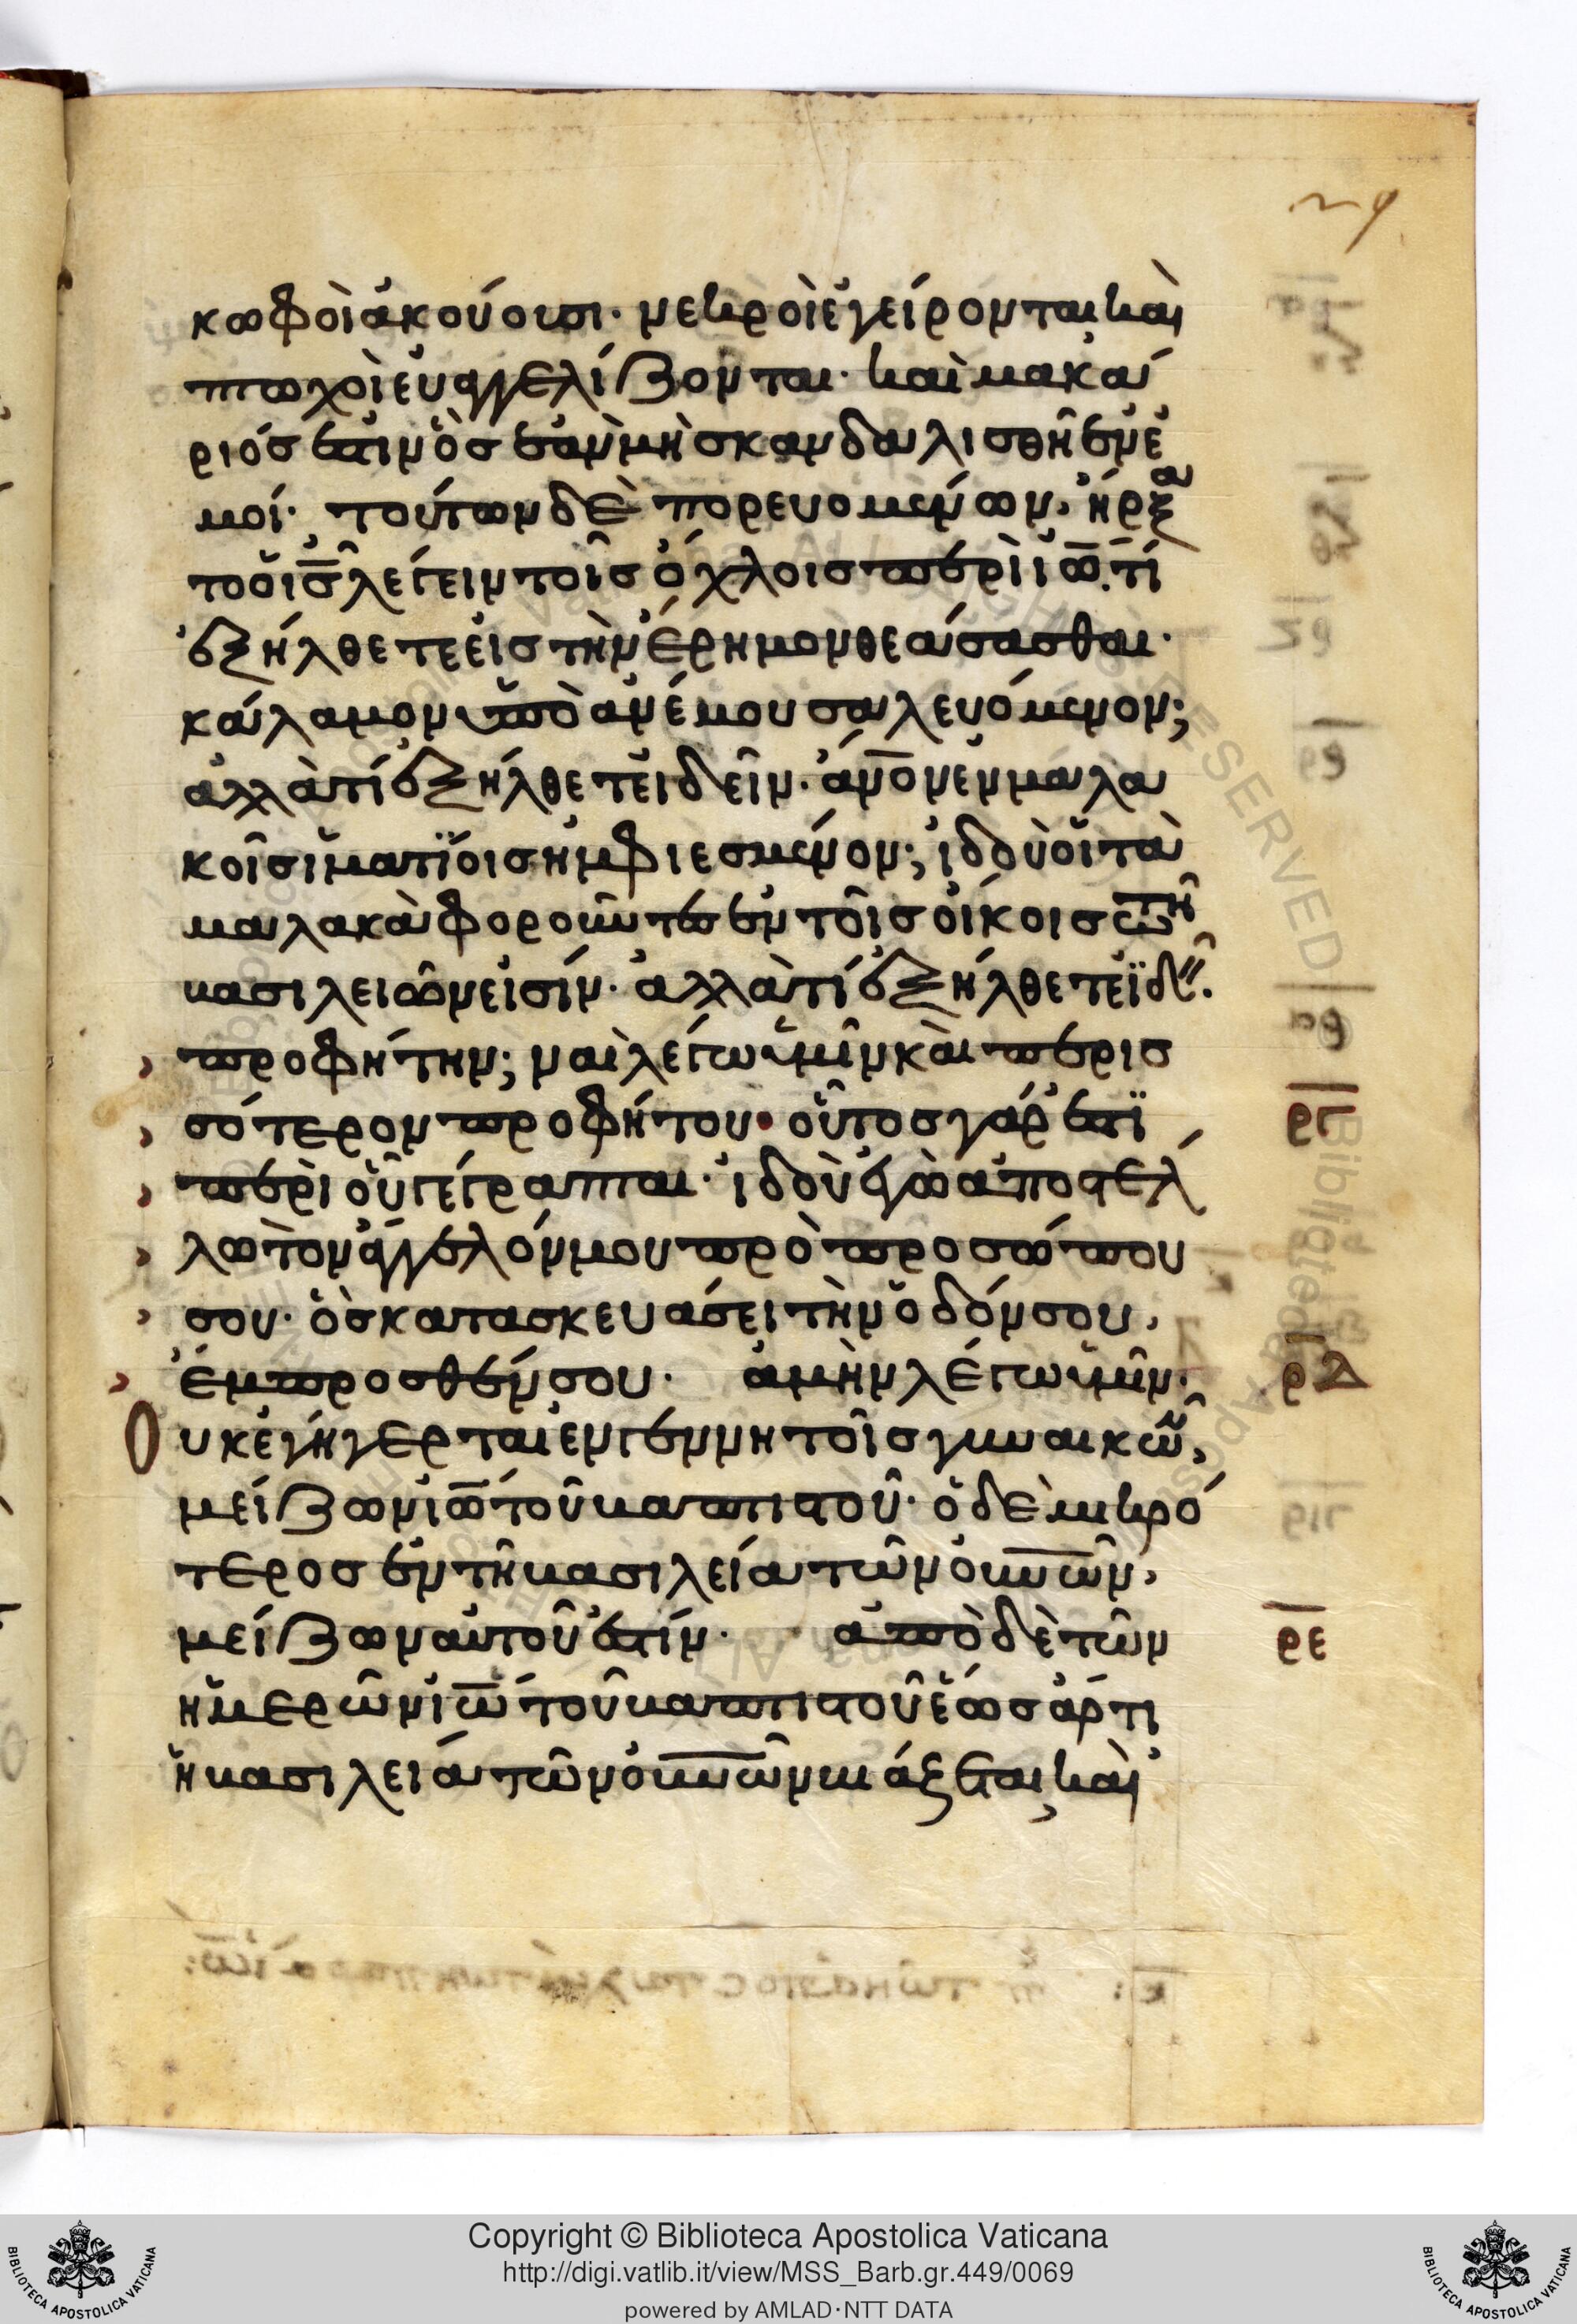 κωφοὶ ἀκούουσι· νεκροὶ ἐγείρονται καὶ
πτωχοὶ εὐαγγελίζονται· καὶ μακά
ριός ἐστιν ὃς ἐὰν μὴ σκανδαλισθῆ ἐν ἐ
μοί· τούτων δὲ πορευομένων, ἤρξα
το ὁ ις λέγειν τοῖς ὄχλοις περὶ ιω. τί
ἐξήλθετε εἰς τὴν ἔρημον θεάσασθαι·
κάλαμον ὑπὸ ἀνέμου σαλευόμενον;
ἀλλὰ τί ἐξήλθετε ἰδεῖν· ἄνον ἐν μαλα
κοῖς ἱματίοις ἠμφιεσμένον; ἰδοὺ οἱ τὰ
μαλακὰ φοροῦντες ἐν τοῖς οἴκοις τῶν
βασιλειῶν εἰσίν· ἀλλὰ τί ἐξήλθετε ἰδεῖν.
προφήτην; ναὶ λέγω ὑμῖν καὶ περισ
σότερον προφήτου· οὗτος γάρ ἐστι
περὶ οὗ γέγραπται· ἰδοὺ ἐγὼ ἀποστέλ
λω τὸν ἄγγελόν μου πρὸ προσώπου
σου· ὃς κατασκευάσει τὴν ὁδόν σου,
ἔμπροσθέν σου· ἀμὴν λέγω ὑμῖν·
Ουκ ἐγήγερται ἐν γεννητοῖς γυναικῶν,
μείζων ιω τοῦ βαπτιστοῦ· ὁ δὲ μικρό
τερος ἐν τῆ βασιλεία τῶν οὐνῶν,
μείζων αὐτοῦ ἐστίν· ἀπὸ δὲ τῶν
ἡμερῶν ιω τοῦ βαπτιστοῦ ἕως ἄρτι
ἡ βασιλεία τῶν οὐνῶν βιάζεται, καὶ
ργ
ρδ
ρε
Copyright © Biblioteca Apostolica Vaticana
http://digi.vatlib.it/view/MSS_Barb.gr.449/0069
powered by AMLAD·NTT DATA
BIBLIOTECA APOSTOLICA VATICANA
BIBLIOTECA APOSTOLICA VATICANA